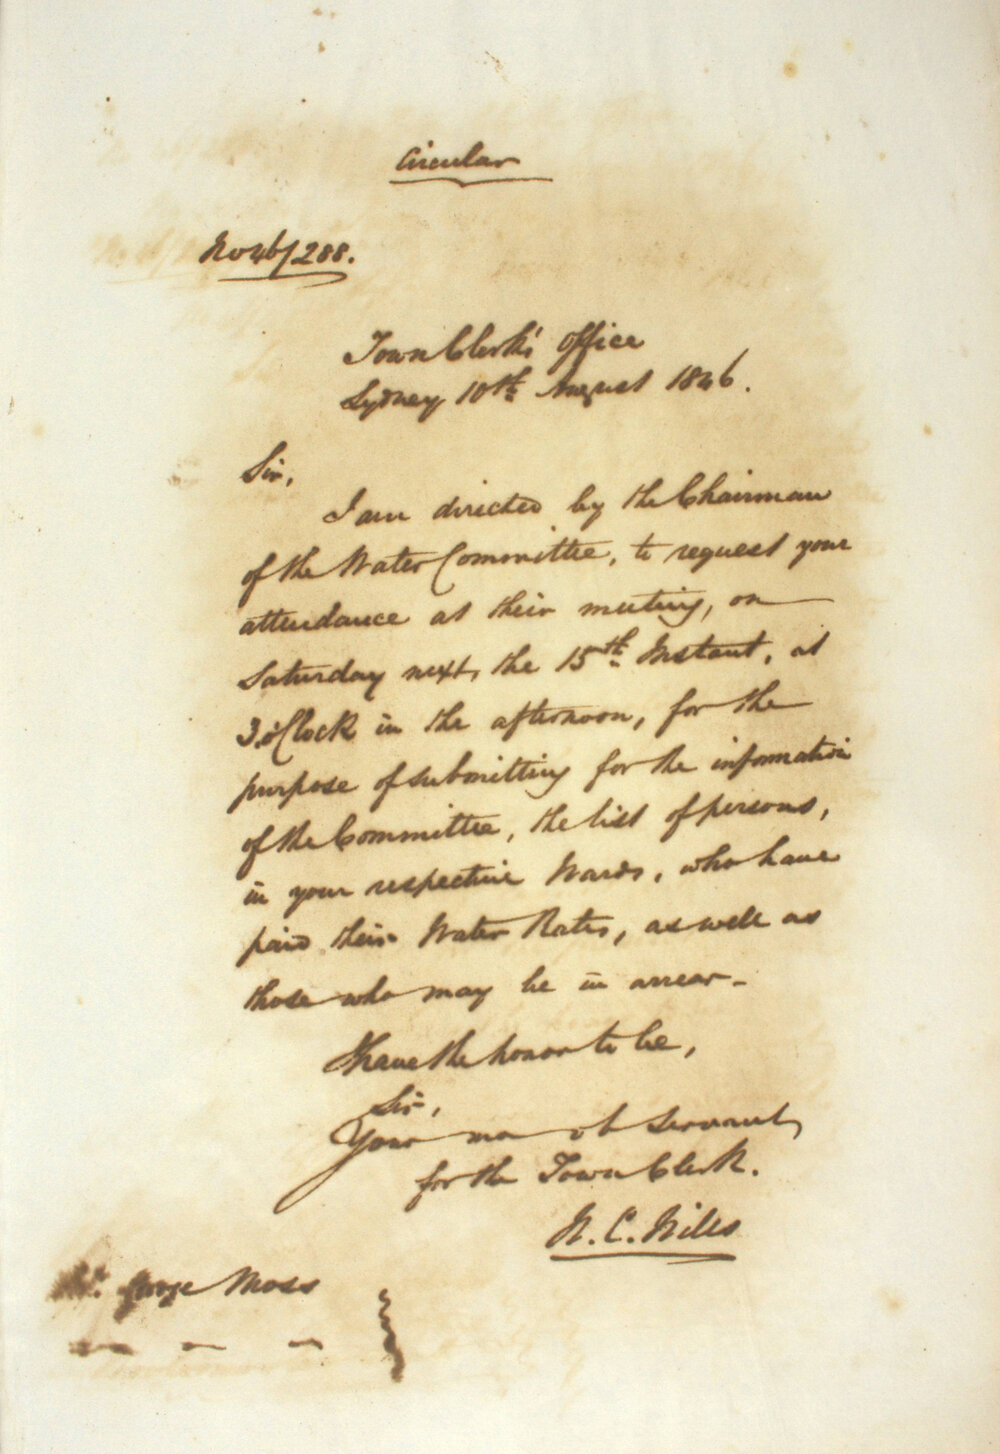 Circular
No 46/288.
Town Clerk's Office
Sydney 10th August 1846.
Sir,
I am directed by the Chairman
of the Water Committee, to request your
attendance at their meeting, on
Saturday next, the 15th Instant, at
3 o'Clock in the afternoon, for the
purpose of submitting for the information
of the Committee, the list of persons,
in your respective Wards, who have
paid their Water Rates, as well as
those who may be in arrear.
I have the honor to be,
Sir,
Your mo ob Servant,
for the Town Clerk.
George Moss